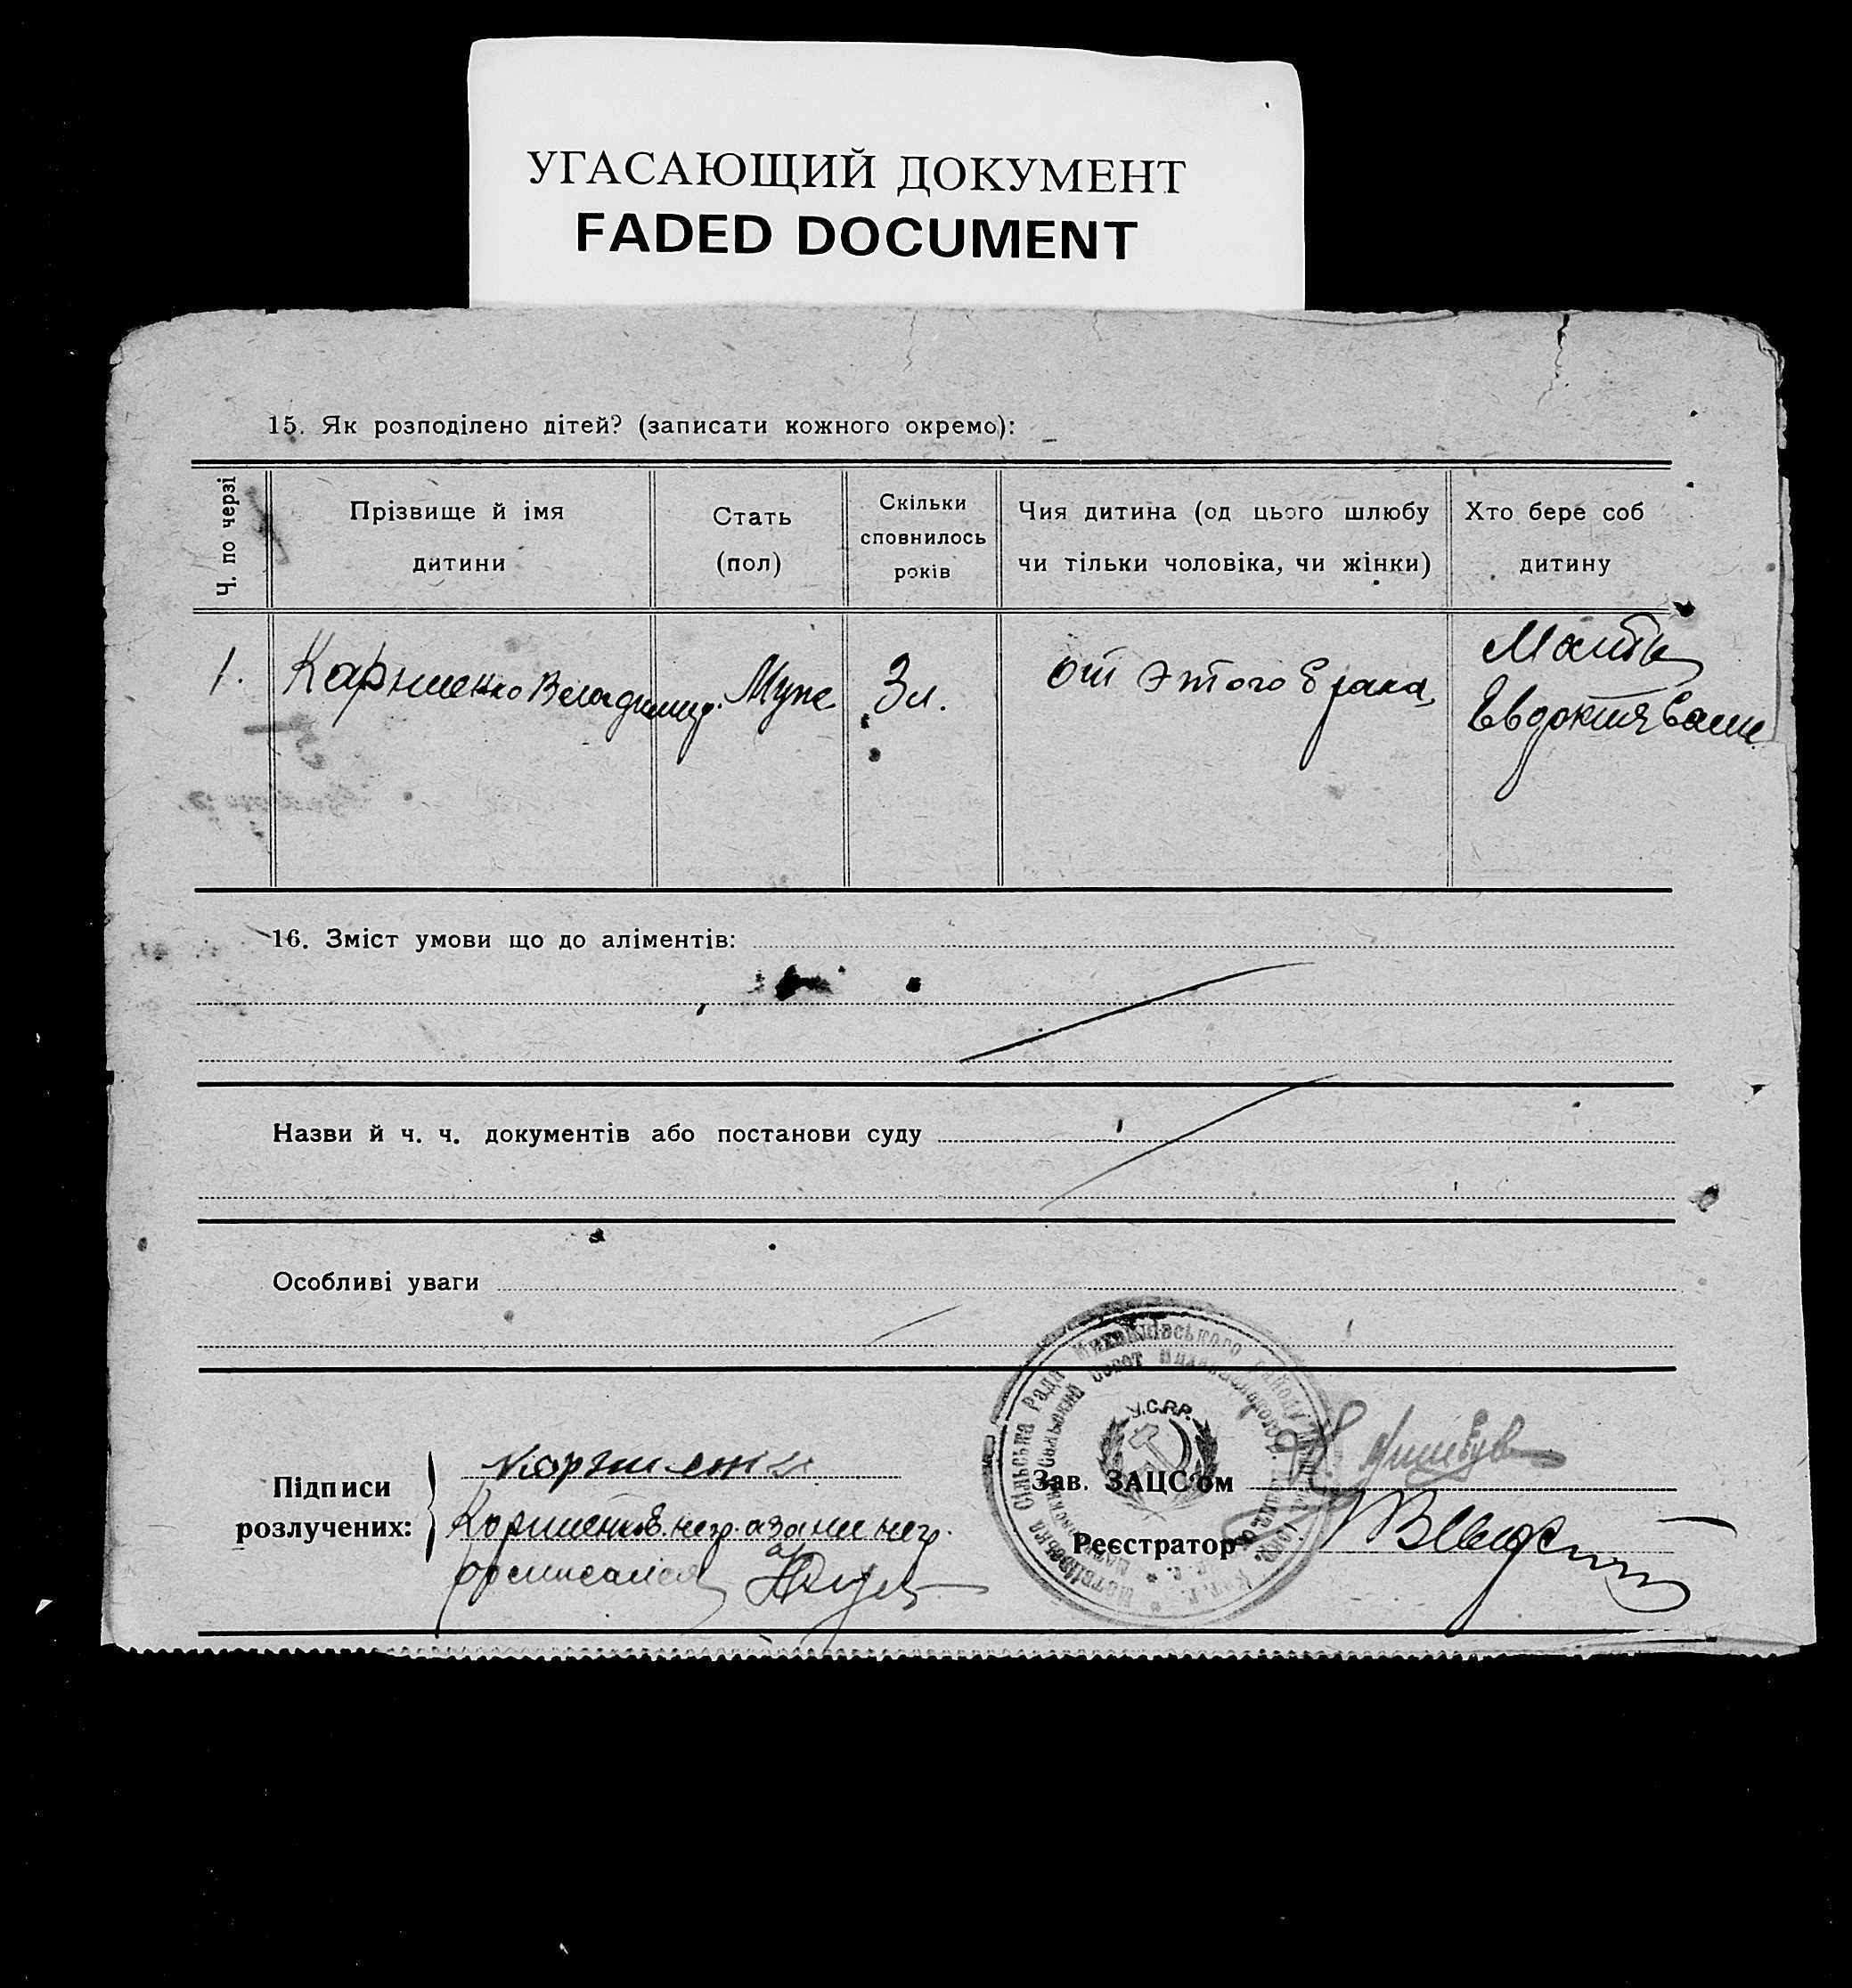 УГАСАЮЩИЙ ДОКУМЕНТ
FADED DOCUMENT
15. Як розподілено дітей? (записати кожного окремо):
Ч. по черзі
Прізвище й імя
дитини
Стать
(пол)
Скільки
сповнилось
років
Чия дитина (од цього шлюбу
чи тільки чоловіка, чи жінки)
Хто бере соб
дитину
1. Каршенко Владимир. Муж 3 л. от этого брака
Мать
Евдокия
16. Зміст умови що до аліментів:
Назви й ч. ч. документів або постанови суду
Особливі уваги
Сільська Рада Михайлівського району
У.С.Р.Р.
Підписи
розлучених:
Каршенко
неgr. а за ни негр.
росписался
Зав. ЗАЦС'ом
Реєстратор